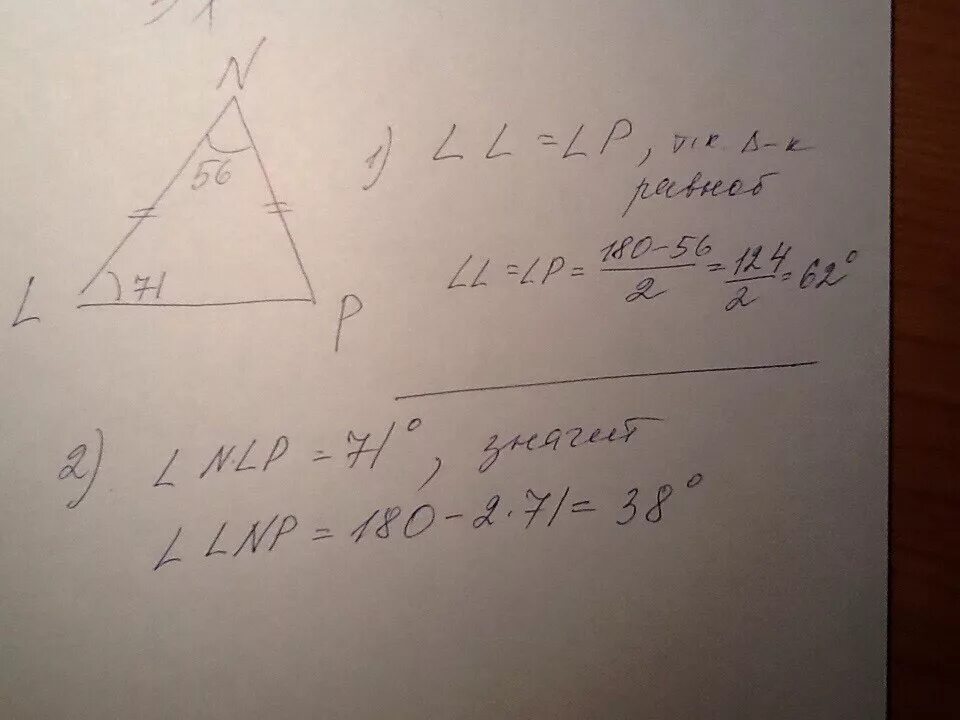 N
56
71
L
P
1) ∠L = ∠P, т.к. Δ-к
равноб
∠L = ∠P = (180-56)/2 = 124/2 = 62°
2) ∠NLP = 71°, значит
∠LNP = 180 - 2·71 = 38°